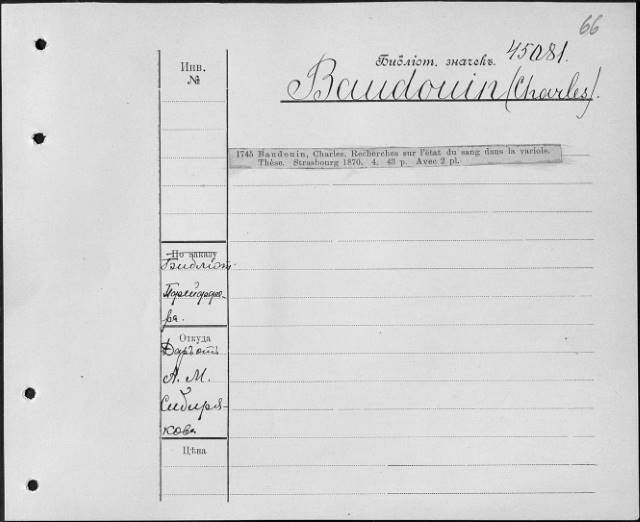 66
Инв.
№
Библіот. значекъ 45081.
Baudouin (Charles).
1745 Baudouin, Charles, Recherches sur l'état du sang dans la variole.
Thèse. Strasbourg 1870. 4. 43 p. Avec 2 pl.
По заказу
Библіот.
Откуда
Даръ отъ
А. М.
Сибиря-
кова
Цѣна